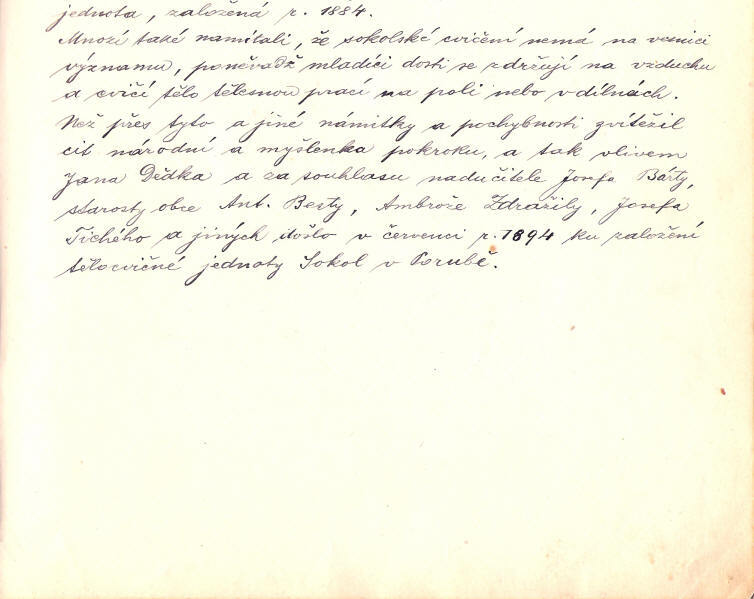 jednota, založená r. 1884.
Mnozí také namítali, že sokolské cvičení nemá na vesnici
významu, poněvadž mladíci dosti se zdržují na vzduchu
a cvičí tělo tělesnou prací na poli nebo v dílnách.
Než přes tyto a jiné námitky a pochybnosti zvítězil
cit národní a myšlenka pokroku, a tak vlivem
Jana Dědka a za souhlasu nadučitele Josefa Bárty,
starosty obce Ant. Besty, Ambrože Zdražily, Josefa
Tichého a jiných došlo v červenci r. 1894 ku založení
tělocvičné jednoty Sokol v Porubě.